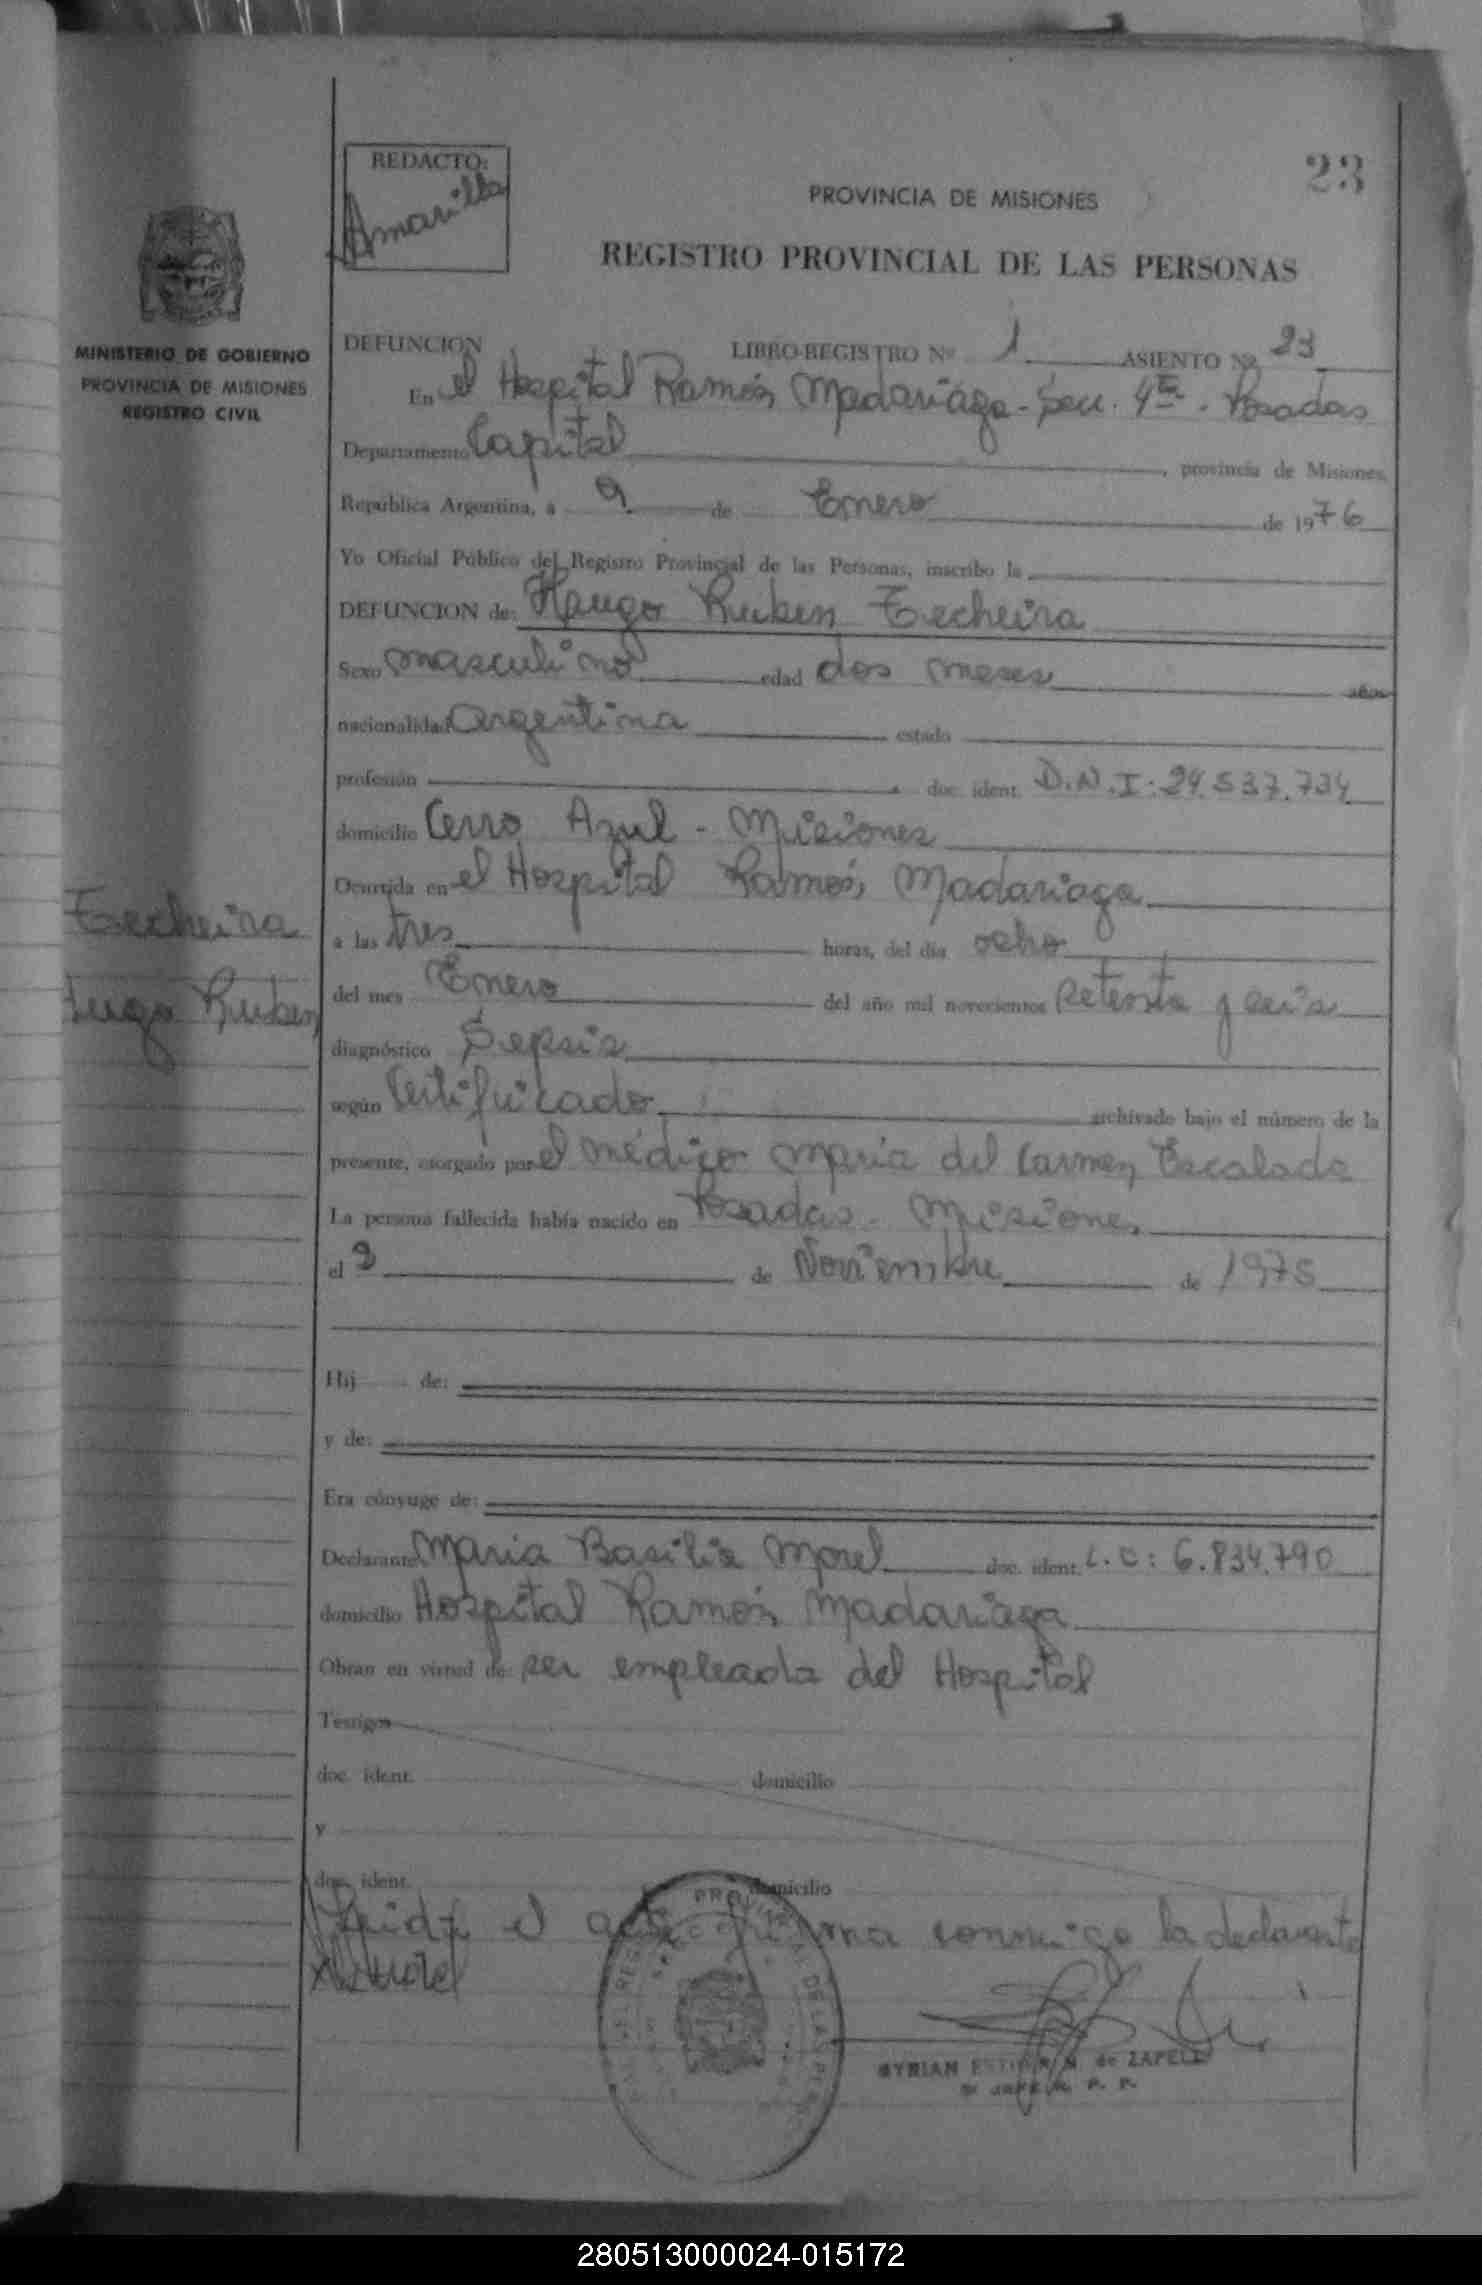 23
REDACTO:
Amarilla
PROVINCIA DE MISIONES
REGISTRO PROVINCIAL DE LAS PERSONAS
MINISTERIO DE GOBIERNO
PROVINCIA DE MISIONES
REGISTRO CIVIL
DEFUNCION LIBRO-REGISTRO Nº 1 ASIENTO Nº 23
En el Hospital Ramón Madariaga - Secc. 4ta - Posadas
Departamento Capital, provincia de Misiones,
República Argentina, a 9 de Enero de 1976
Yo Oficial Público del Registro Provincial de las Personas, inscribo la
DEFUNCION de: Haugo Ruben Techeira
Sexo masculino edad dos meses años
nacionalidad argentina estado
profesión doc. ident. D.N.I: 24.537.734
domicilio Cerro Azul - Misiones
Ocurrida en el Hospital Ramón Madariaga
Techeira
a las tres horas, del día ocho
Hugo Ruben
del mes Enero del año mil novecientos setenta y seis
diagnóstico Sepsis
según Certificado archivado bajo el número de la
presente, otorgado por el médico María del Carmen Escalada
La persona fallecida había nacido en Posadas - Misiones
el 9 de Noviembre de 1975
Hij de:
y de:
Era cónyuge de:
Declarante Maria Basilia Morel doc. ident. L.C: 6.834.790
domicilio Hospital Ramón Madariaga
Obran en virtud de ser empleada del Hospital
Testigos
doc. ident. domicilio
y
doc. ident. domicilio
Leida el acta firma conmigo la declarante
Morel
MYRIAN de ZAPELLI
280513000024-015172